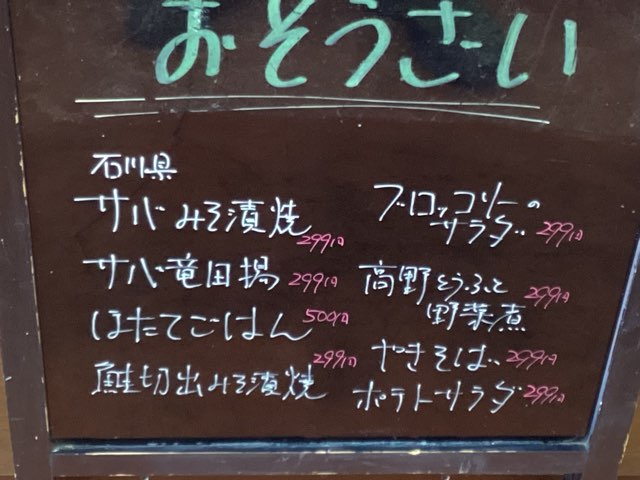 おそうさい
石川県
サバみそ漬焼 299円
サバ竜田揚 299円
ほたてごはん 500円
鮭切出みそ漬焼 299円
ブロッコリーの
サラダ 299円
高野とうふと
野菜煮 299円
やきそば 299円
ポテトサラダ 299円